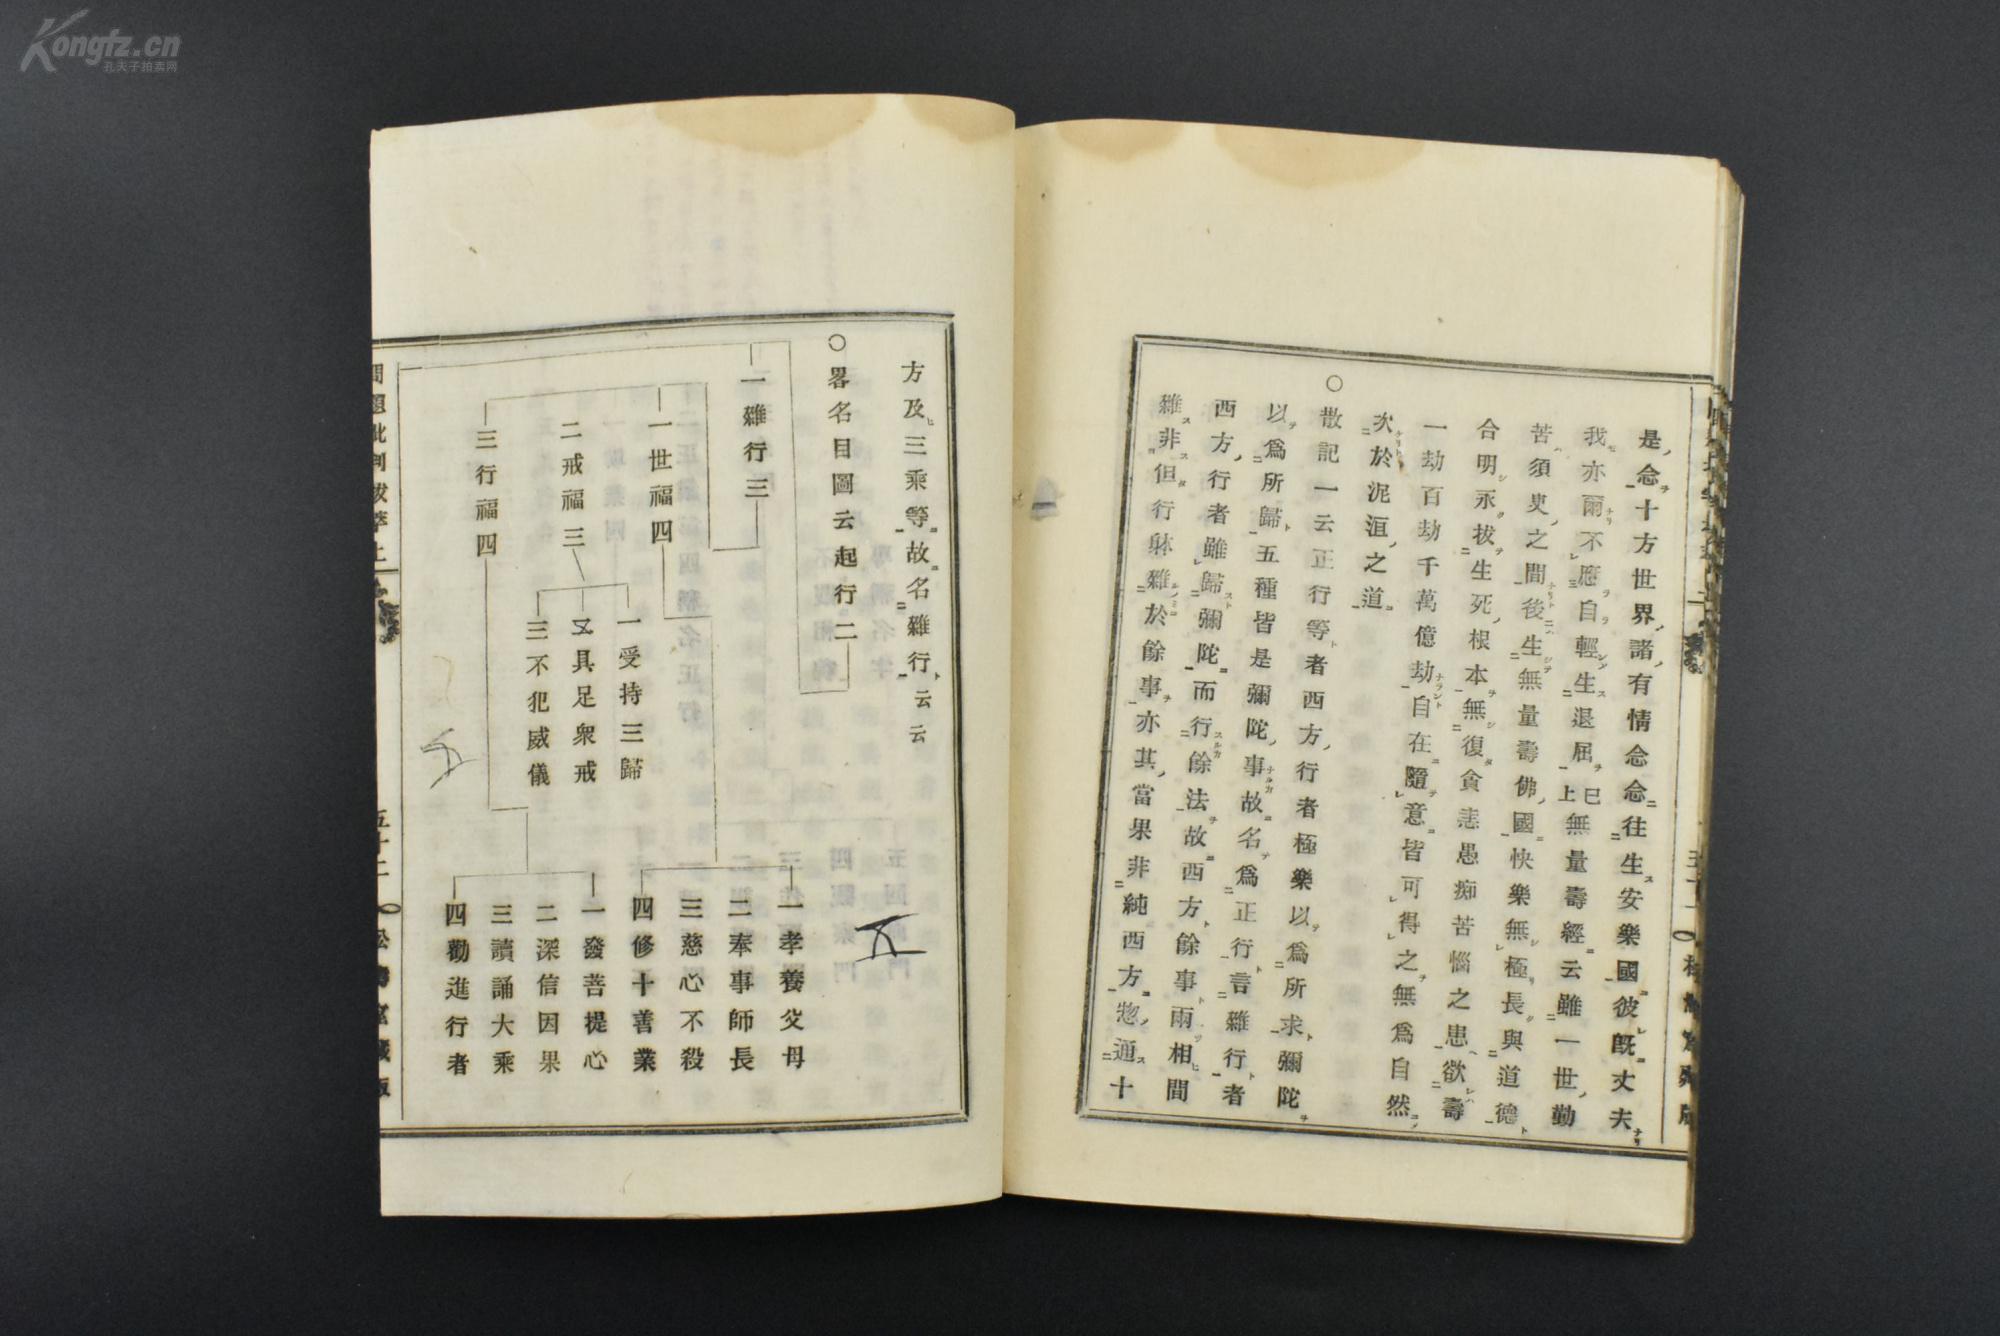 是念十方世界諸有情念念往生安樂國彼既丈夫
我亦爾不應自輕生退屈已上無量壽經云雖一世勤
苦須臾之間後生無量壽佛國快樂無極長與道德
合明永拔生死根本無復貪恚愚痴苦惱之患欲壽
一劫百劫千萬億劫自在隨意皆可得之無為自然
次於泥洹之道
○散記一云正行等者西方行者極樂以為所求彌陀
以為所歸五種皆是彌陀事故名為正行言雜行者
西方行者雖歸彌陀而行餘法故西方餘事兩相間
雜非但行躰雜於餘事亦其當果非純西方惣通十
方及三乘等故名雜行云云
○畧名目圖云起行二
一雜行三
一世福四
二戒福三
三行福四
一受持三歸
又具足衆戒
三不犯威儀
一孝養父母
二奉事師長
三慈心不殺
四修十善業
一發菩提心
二深信因果
三讀誦大乘
四勸進行者
五十二
Kongfz.cn
孔夫子拍卖网